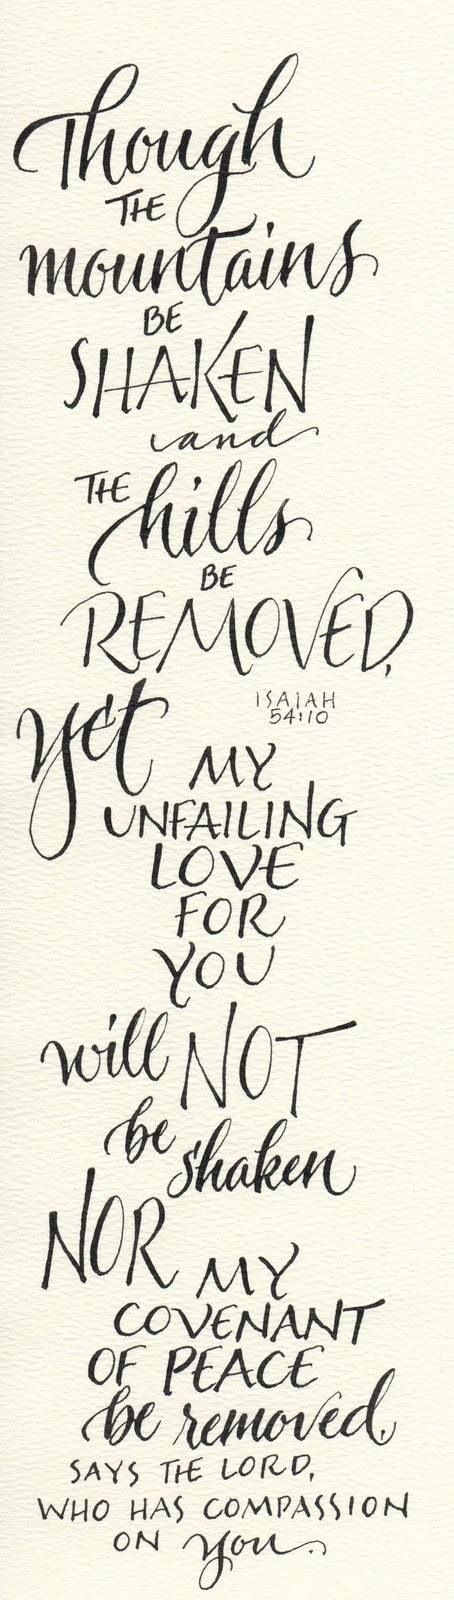 Though
THE
mountains
BE
SHAKEN
and
THE hills
BE
REMOVED,
ISAIAH
54:10
yet MY
UNFAILING
LOVE
FOR
YOU
will NOT
be
shaken
NOR MY
COVENANT
OF PEACE
be removed,
SAYS THE LORD,
WHO HAS COMPASSION
ON you.